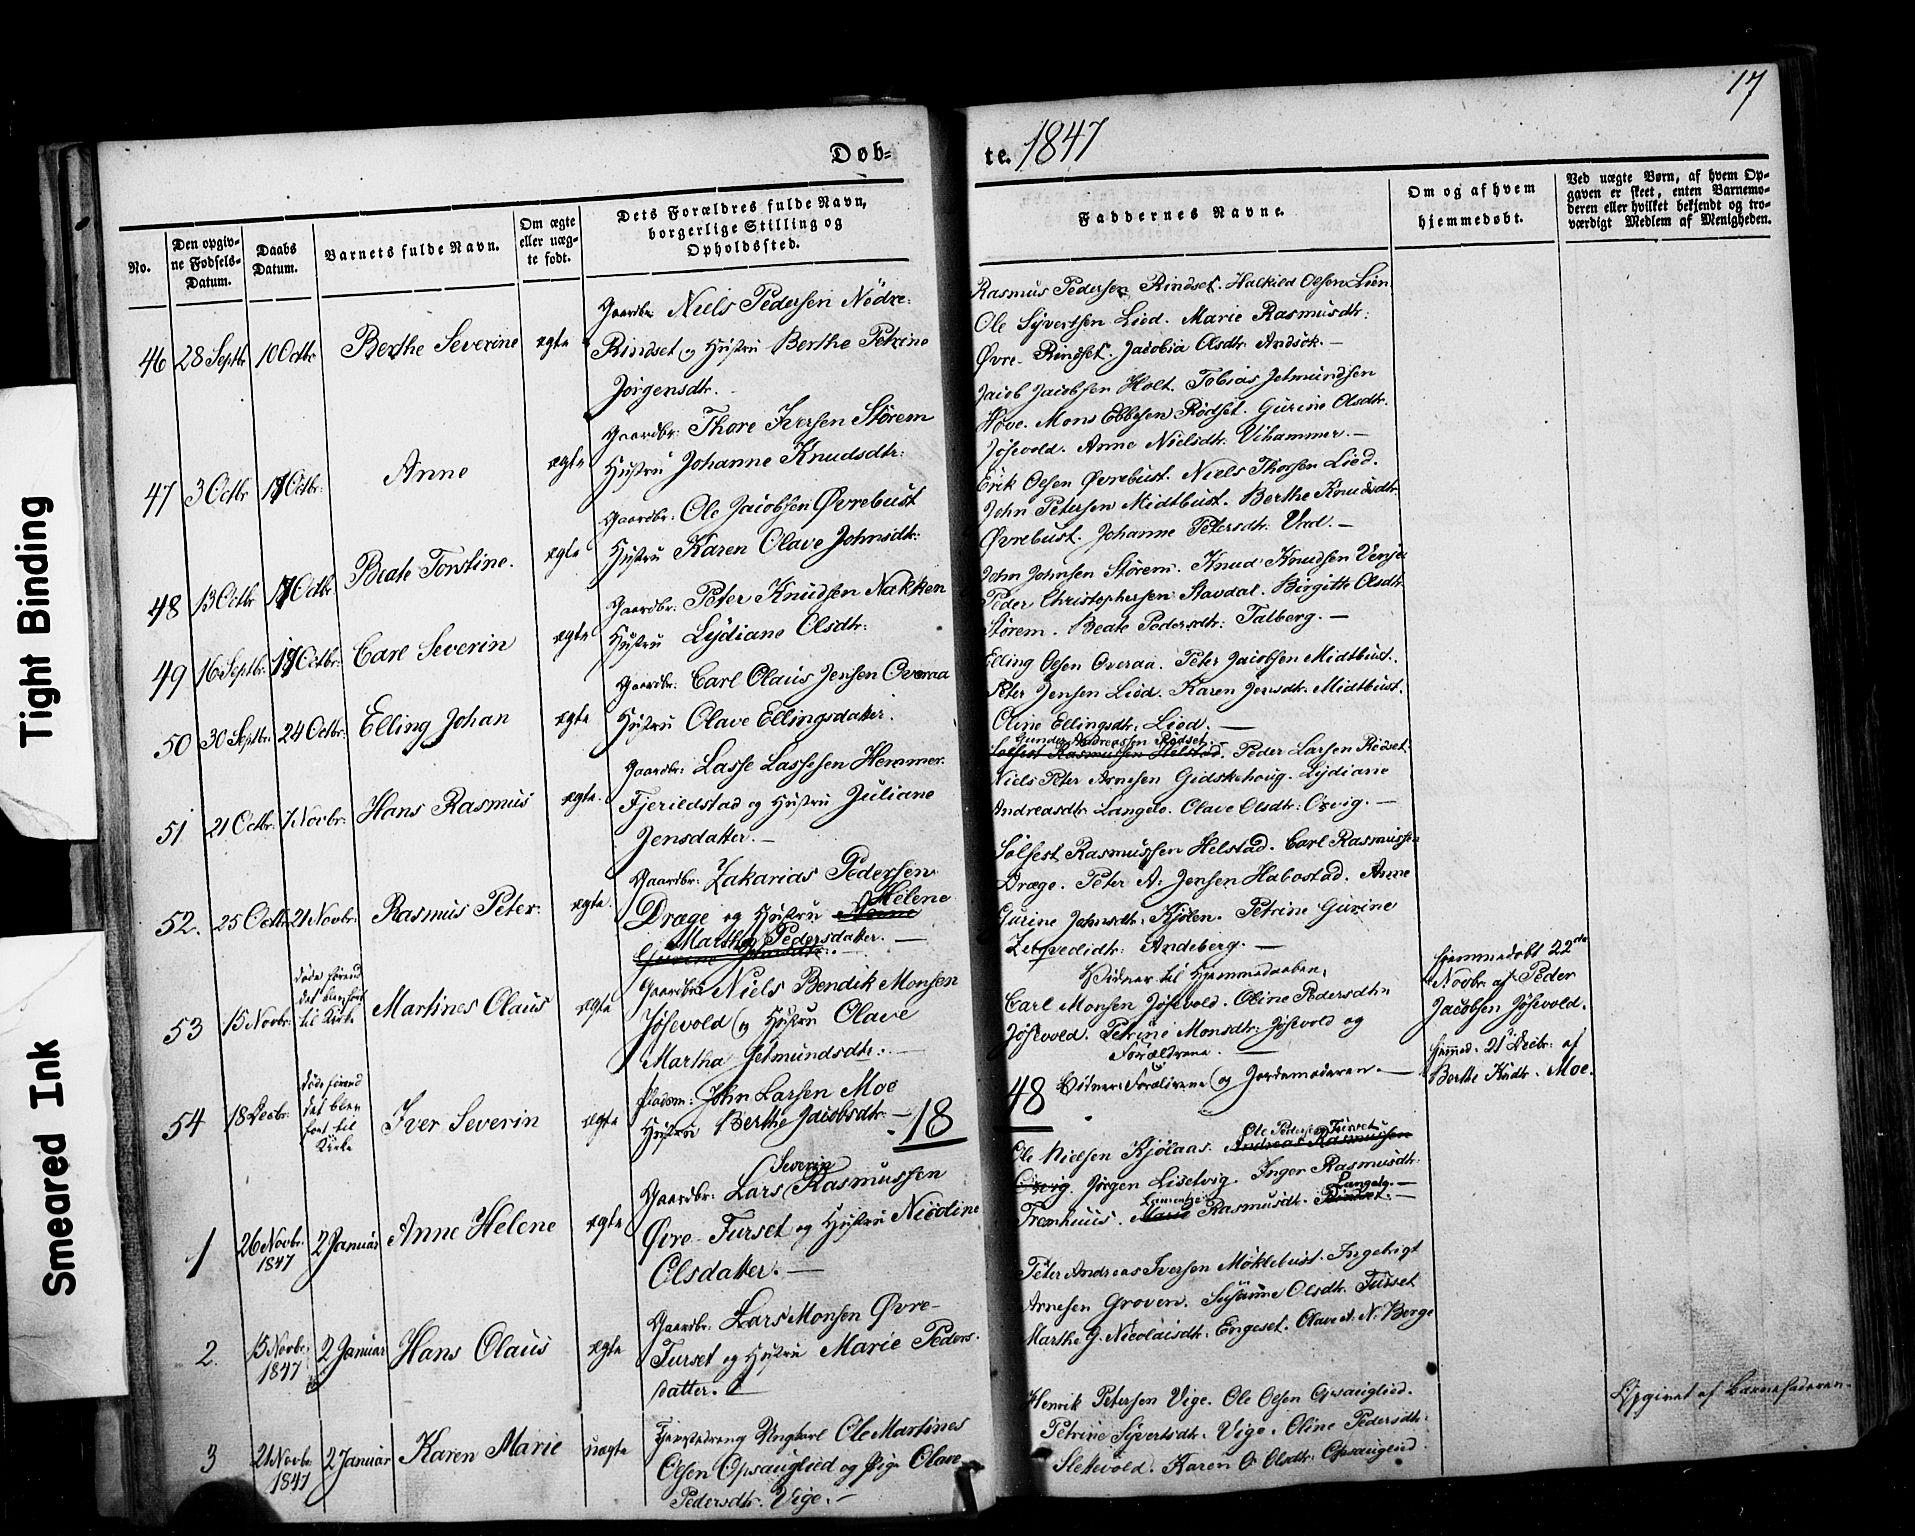 17
Døb-
te. 1847
No.
Den opgiv-
ne Fødsels-
Datum.
Daabs
Datum.
Barnets fulde Navn.
Om ægte
eller uæg-
te født.
Dets Forældres fulde Navn,
borgerlige Stilling og
Opholdssted.
Faddernes Navne.
Om og af hvem
hjemmedøbt.
Ved uægte Børn, af hvem Op-
gaven er skeet, enten Barnemo-
deren eller hvilket bekjendt og tro-
værdigt Medlem af Menigheden.
46 28 Septbr 10 Octbr Berthe Severine ægte
Gaardbr: Niels Pedersen Nedre-
Rindset og Hustru Berthe Petrine
Jørgensdtr.
Rasmus Pedersen Rindset. Halkild Olsen Lien
Ole Syvertsen Lied. Marie Rasmusdtr:
Øvre- Rindset. Jacobia Olsdtr. Andsok.
47 3 Octbr 17 Octbr: Anne ægte
Gaardbr: Thore Iversen Störem
Hustru Johanne Knudsdtr:
Jacob Jacobsen Holt. Tobias Jetmundsen
Hove. Mons Ebbesen Rødset. Gurine Olsdtr.
Jøsevold. Anne Nielsdtr. Vihammer.
48 13 Octbr 17 Octbr Beate Torstine. ægte
Gaardbr: Ole Jacobsen Øvrebust
Hustru Karen Olave Johnsdtr:
Erik Olsen Øvrebust. Niels Thorsen Lied.
John Petersen Midtbust. Berthe Knudsdtr
Øvrebust. Johanne Petersdtr.
49 16 Septbr: 17 Octbr: Carl Severin ægte
Gaardbr: Peter Knudsen Nakken
Hustru Lydiane Olsdtr:
John Johnsen Störem. Knud Knudsen
Peder Christophersen Stavdal. Birgitte Olsdtr.
Störem. Beate Pedersdtr: Talberg.
50 30 Septbr: 24 Octbr: Elling Johan ægte
Gaardbr: Carl Olaus Jensen Overaa
Hustru Olave Ellingsdatter.
Elling Olsen Overaa. Peter Jacobsen Midtbust.
Peter Jensen Lied. Karen Jensdtr: Midtbust.
Oline Ellingsdtr. Lied.
51 21 Octbr. 7 Novbr: Hans Rasmus ægte.
Gaardbr: Lasse Lassesen Hemmer-
Fjerledstad og Hustru Juliane
Jensdatter.
Gunder Andreassen Rødset.
Solfest Rasmussen Helstad. Peder Larsen Rødset.
Niels Peter Arnesen Gidskehoug. Lydiane
Andreasdtr Langelo. Olave Olsdtr: Orvig.
52. 25 Octbr 21 Novbr: Rasmus Peter. ægte.
Gaardbr: Zakarias Pedersen
Helene
Drage og Hustru Anne
Martha Pedersdatter.
Gurine Johnsdtr.
Solfest Rasmussen Helstad. Carl Rasmussen
Drage. Peter A: Jensen Habostad. Anne
Gurine Johnsdtr: Kjølen. Petrine Gurine
Andeberg.
53 15 Novbr.
døde førend
det blev ført
til Kirke
Martines Olaus ægte
Gaardbr: Niels Bendik Monsen
Jøsevold og Hustru Olave
Martha Jetmundsdtr:
Vidner til Hjemmedaaben.
Carl Monsen Jøsevold. Oline Pedersdtr:
Jøsevold. Petrine Monsdtr: Jøsevold og
Forældrene.
Hjemmedøbt 22de
Novbr. af Peder
Jacobsen Jøsevold.
54 18 Decbr:
døde førend
det blev
ført til
Kirke
Iver Severin ægte
Pladsm: John Larsen Moe
Hustru Berthe Jacobsdtr.
18
48
Vidner: Forældrene og Jordemoderen.
Hjemmed: 21 Decbr: af
Berthe Kndtr. Moe.
1 26 Novbr. 1847 2 Januar Anne Helene ægte
Severin
Gaardbr: Lars Rasmussen
Øvre- Furset og Hustru Nicoline
Olsdatter.
Ole Pedersen Furset
Ole Nielsen Kjølaas. Andreas Rasmussen
Orvig. Jørgen Liselvig. Inger Rasmusdtr.
Langelo.
Fremhuus. Marie Rasmusdtr. Rindset.
2. 13 Novbr: 1847 2 Januar Hans Olaus ægte
Gaardbr: Lars Monsen Øvre-
Furset og Hustru Marie Peders-
datter.
Peter Andreas Iversen Møklebust. Ingebrigt
Arnesen Groven. Susanne Olsdtr Furset
Marthe G. Nicolaisdtr. Engeset. Olave A. N. Berge
3 21 Novbr 1847 2 Januar Karen Marie uægte
Ungkarl Ole Martines
Olsen Opsauglied og Pige Olave
Pedersdtr. Vige.
Henrik Petersen Vige. Ole Olsen Opsauglied.
Petrine Syvertsdtr. Vige. Oline Pedersdtr.
Slettevold. Karen O. Olsdtr: Opsauglied.
Opgivet af Barnefaderen.
Tight Binding
Smeared Ink